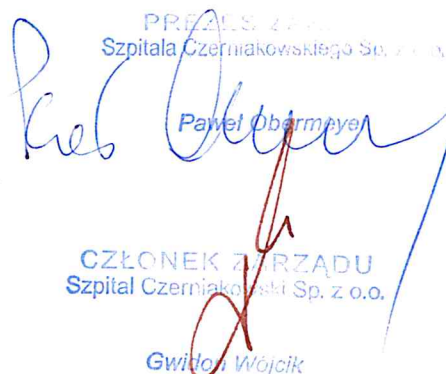 PREZES ZARZ
Szpitala Czerniakowskiego Sp. z o.o.
Paweł Obermeyer
CZŁONEK ZARZĄDU
Szpital Czerniakowski Sp. z o.o.
Gwidon Wójcik